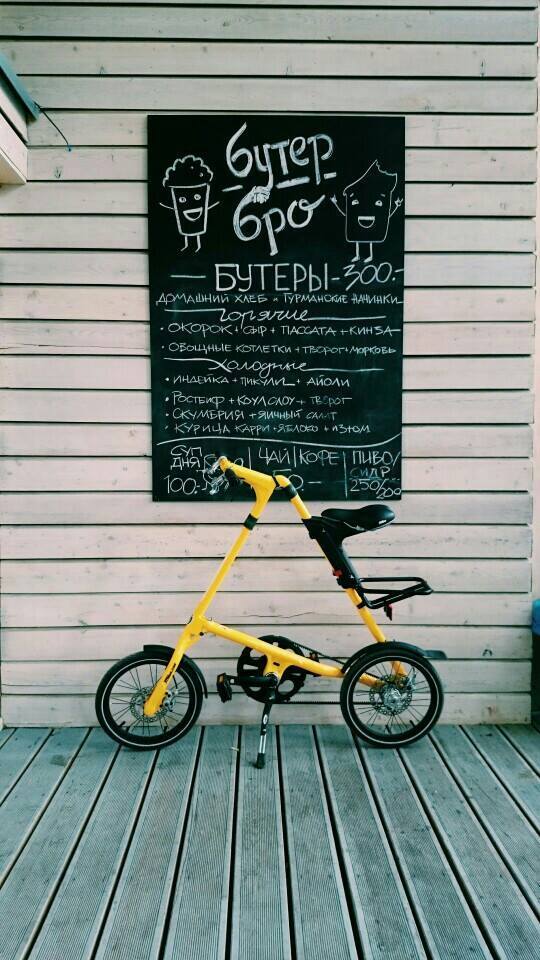 бутер
бро
— БУТЕРЫ - 300.-
ДОМАШНИЙ ХЛЕБ и ГУРМАНСКИЕ НАЧИНКИ
Горячие
• ОКОРОК + СЫР + ПАССАТА + КИНЗА
• ОВОЩНЫЕ КОТЛЕТКИ + ТВОРОГ + МОРКОВЬ
Холодные
• ИНДЕЙКА + ПИКУЛИ + АЙОЛИ
• РОСТБИФ + КОУЛСЛОУ + ТВОРОГ
• СКУМБРИЯ + ЯИЧНЫЙ САЛАТ
• КУРИЦА КАРРИ + ЯБЛОКО + ИЗЮМ
СУП ДНЯ 100.-
ЧАЙ | КОФЕ
ПИВО/СИДР
250/200